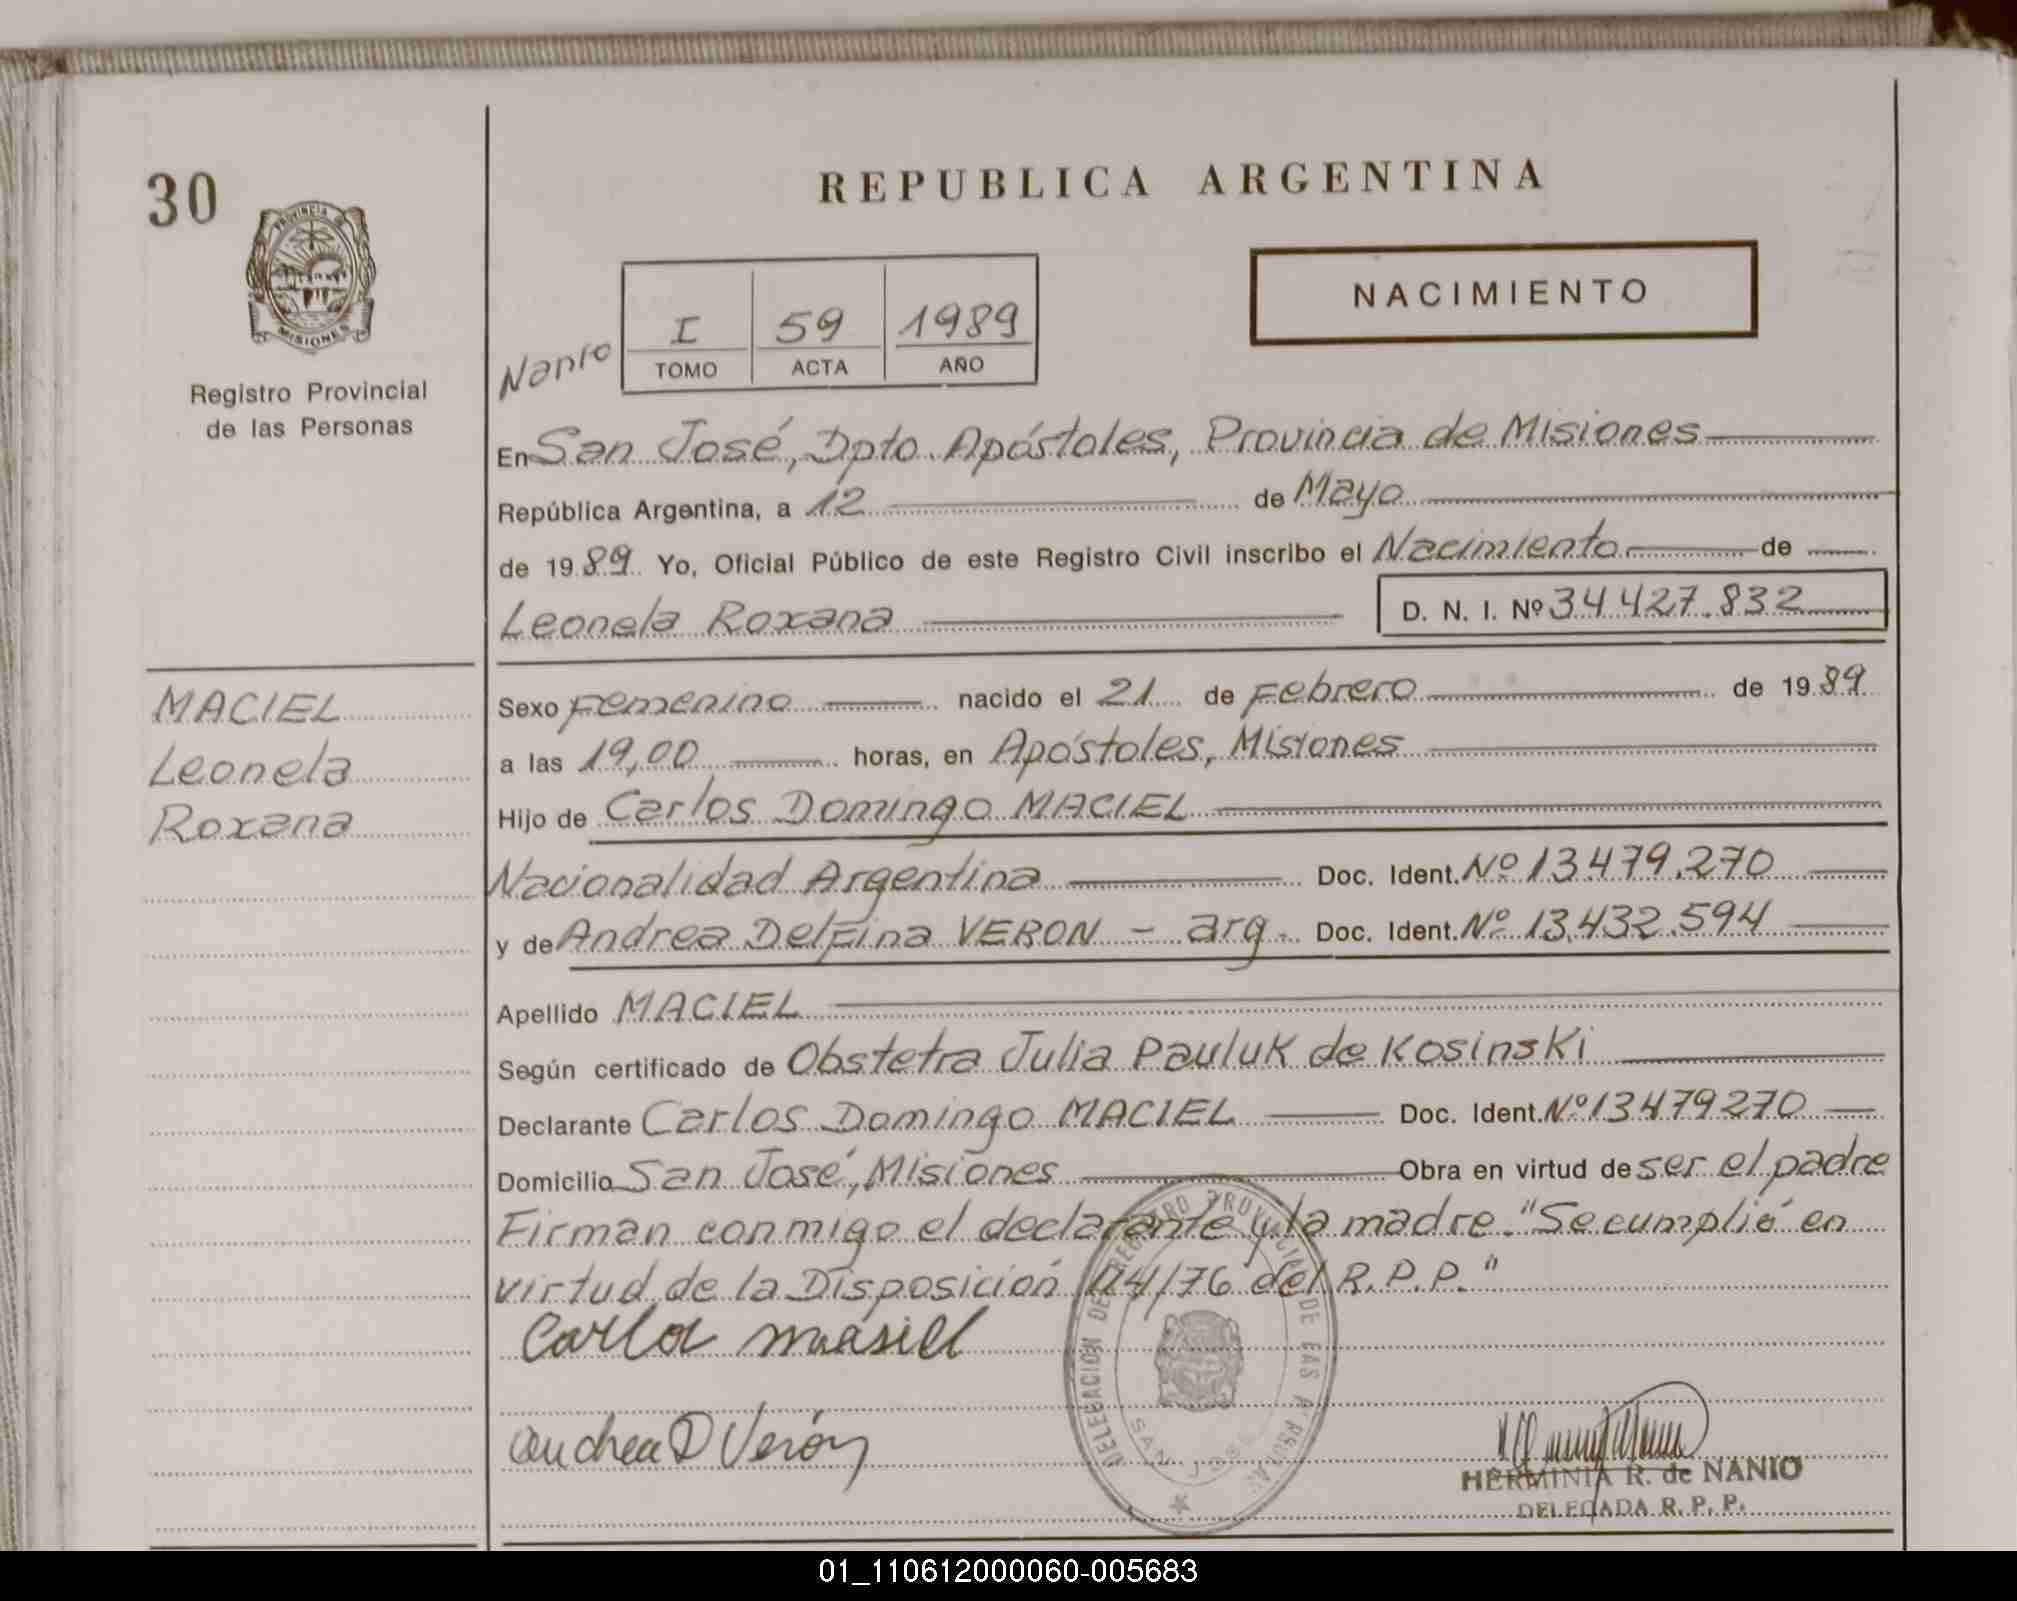 30
PROVINCIA DE
MISIONES
Registro Provincial
de las Personas
REPUBLICA ARGENTINA
NACIMIENTO
Nanio
I 59 1989
TOMO ACTA AÑO
En San José, Dpto. Apóstoles, Provincia de Misiones
República Argentina, a 12 de Mayo
de 1989. Yo, Oficial Público de este Registro Civil inscribo el Nacimiento de
Leonela Roxana D. N. I. Nº 34.427.832
MACIEL
Leonela
Roxana
Sexo Femenino nacido el 21 de Febrero de 1989
a las 19,00 horas, en Apóstoles, Misiones
Hijo de Carlos Domingo MACIEL
Nacionalidad Argentina Doc. Ident. Nº 13.479.270
y de Andrea Delfina VERON - arg. Doc. Ident. Nº 13.432.594
Apellido MACIEL
Según certificado de Obstetra Julia Pauluk de Kosinski
Declarante Carlos Domingo MACIEL Doc. Ident. Nº 13479270
Domicilio San José, Misiones Obra en virtud de ser el padre
Firman conmigo el declarante y la madre. "Se cumplió en
virtud de la Disposición 114/76 del R.P.P."
Carlos masiel
andrea D Verón
DELEGACION DE REGISTRO PROVINCIAL DE LAS PERSONAS
SAN JOSE
HERMINIA R. de NANIO
DELEGADA R. P. P.
01_110612000060-005683